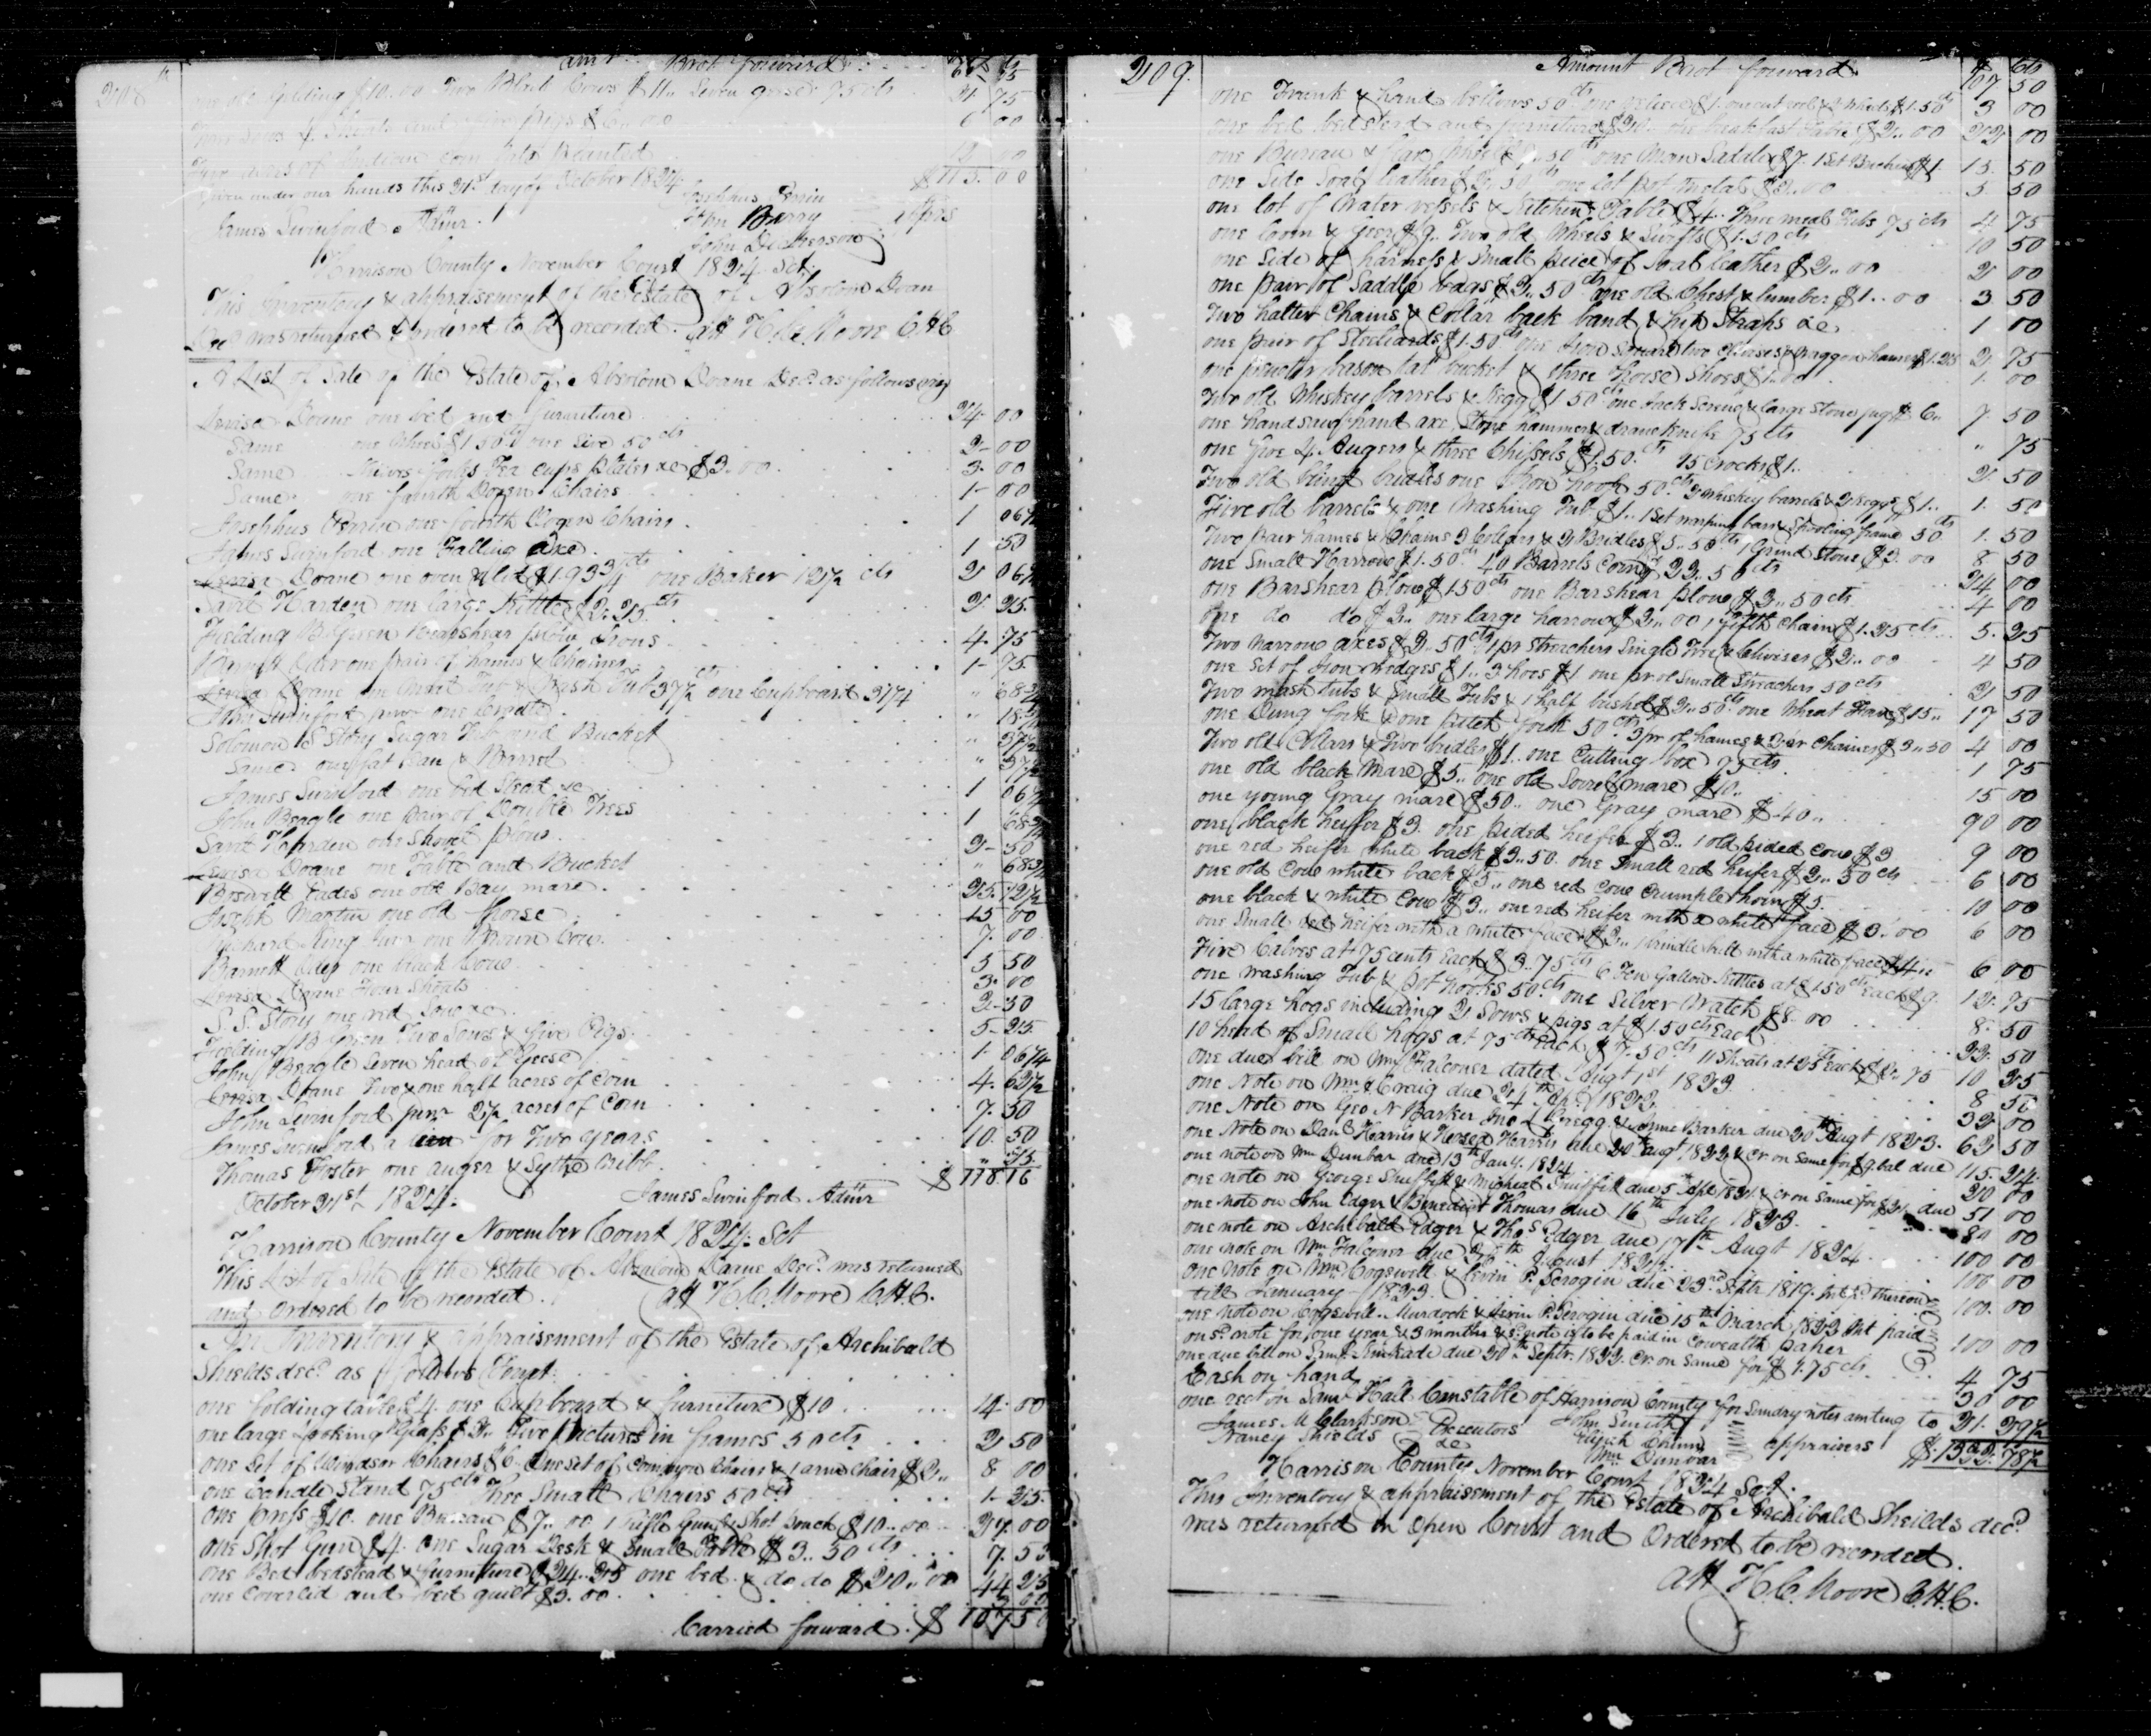 208
amt Brot forward
one old Gelding $10.00 Two Black Cows $11.. Seven geese 75 cts 21 75
pigs $6..00 6 00
acres of Indian corn planted
Given under our hands this 21st day of October 1824 $115.00
Josephus Perrin
James Swinford Admr. John Berry
John Dickerson
Harrison County November Court 1824 Sct.
This Inventory & appraisement of the Estate of Absolom Doan
Decd was returned & ordered to be recorded. Att H. C. Moore C H C
A List of Sale of the Estate of Absolom Doane Decd as follows viz
Levisa Doane one bed and furniture 24 00
Same one Wheel $1 50 cts one 50 cts 2 00
Same Knives forks Tea cups plates &c $3..00 3 00
Same one fourth Dozen Chairs 1 00
Josephus Perrin one fourth Dozen Chairs 1 06¼
James Swinford one Falling Axe 1 50
Levisa Doane one oven & lid $1.93¾ cts one Baker 12½ cts 2 06¼
Savil Harden one large Kettle $2.25 cts 2 25
Fielding B Green Barshear plow Irons 4. 75
one pair of hames & Chains 1 75
Levisa Doane one Meat Tub & Wash Tub 37½ cts one Cupboard 31¼ " 68¾
John Swinford junr one Cradle " 18¾
Solomon S Story Sugar Tub and Bucket " 37½
Same one & Barrel " 37½
James Swinford one bed Stead &c 1 06¼
John Beagle one pair of Double Trees 1 68¾
Savil Harden one Shovel plow 2 50
Levisa Doane one Table and Bucket " 68¾
Boswell Eades one old Bay mare 25. 12½
Joseph Martin one old Horse 15 00
Richard King Junr one Brown Cow 7. 00
Barnett one black Cow 5 50
Levisa Doane Four Shoats 3. 00
S. S. Story one red Sow &c 2 50
Fielding B Green Two Sows & five Pigs 5. 25
John Beagle Seven head of Geese 1 06¼
Levisa Doane Two & one half acres of Corn 4. 62½
John Swinford junr 2½ acres of Corn 7. 50
James Swinford a for Two years 10. 50
Thomas Foster one auger & Sythe
October 21st 1824. James Swinford Admr $
Harrison County November Court 1824. Sct
This List of Sale of the Estate of Absalom Doane Decd. was returned
and Ordered to be recorded. Att H. C. Moore C.H.C.
An Inventory & appraisement of the Estate of Archibald
Shields decd. as follows
one folding table $4. one Cupboard & furniture $10 14. 00
one large Looking Glass $2.. Five pictures in frames 50 cts 2 50
one Set of Windsor Chairs $6 One set of Common Chairs & 1 arm chair $2.. 8 00
one Candle Stand 75 cts Three Small Chairs 50 cts 1 25.
one press $10. one Bureau $7..00 1 Rifle Gun & Shot pouch $10..00 27 00
one Shot Gun $4. One Sugar Desk & Small Table $3..50 cts 7. 50
one Bed bedstead & furniture $24..25 one bed & do do $20..00 44 25
one Coverlid and bed quilt $3.00 3 00
Carried forward. $ 107 50
209.
Amount Brot forward $ Cts 107 50
one Trunk & hand bellows 50 cts 3 00
one bed bedstead and furniture $20.. one breakfast table $2..00 22 00
one Bureau & one Man Saddle $7. 15. 50
one Side Soal leather $2..50 cts one lot pot metal 5 50
one lot of Water vessels & Kitchen Table $4.. Three meal Tubs 75 cts 4 75
one Loom & Geer $9.. Two old Wheels & Swifts $1.50 cts 10 50
one Side of harness & Small peice of Soal leather $2..00 2 00
one pair of Saddle bags $2..50 cts one old Chest & lumber $1..00 3 50
Two halter Chains & Collar back band & hip Straps &c 1 00
one pair of Steeliards $1.50 cts one Iron Square two & waggon hamer $1.25 2 75
one pewter bason fat bucket & three horse Shoes $1..00 1. 00
Two old Whiskey barrels & Kegg $1 50 cts one Jack Screw & large Stone jug $6.. 7 50
one handsaw hand axe Stone hammer & drawknife 75 cts " 75
one 4 Augers & three Chissels $1.50 cts 15 Crocks $1.. 2 50
Two old blind bridles one Iron hoop 50 cts 2 Whiskey barrels & 2 Keggs $1.. 1. 50
Five old barrels & one Washing Tub $1.. 1 Set warping bars & Spooling frame 50 cts 1. 50
Two pair hames & Chains 2 Collars & 2 Bridles $5..50 cts 1 Grind Stone $3.00 8 50
one Small Harrow $1.50 cts 40 Barrels Corn $22..50 cts 24 00
one Barshear plow $1 50 cts one Barshear plow $2..50 cts 4 00
one do do $2.. one large harrow $2..00 1 fifth chain $1.25 cts 5. 25
Two narrow axes $2..50 cts 1 pr Streachers Single Tree & Clivises $2..00 4 50
one Set of Iron wedges $1.. 3 hoes $1 one pr of Small Streachers 50 cts 2 50
Two mash tubs & Small Tubs & 1 half bushel $2..50 cts one Wheat Fan $15.. 17 50
one Dung fork & one pitch fork 50 cts 3 pr of hames & 2 pr Chains $3..50 4 00
Two old Collars & Two bridles $1.. one Cutting box 75 cts 1 75
one old black Mare $5.. one old Sorrel mare $10.. 15 00
one young Gray mare $50.. one Gray mare $40.. 90 00
one black heifer $3. one pided heifer $3.. 1 old pided Cow $3 9 00
one red heifer white back $3..50. one Small red heifer $2..50 cts 6 00
one old Cow white back $5.. one red Cow Crumple horn $5. 10 00
one black & white Cow $3.. one red heifer with a white face $3..00 6 00
one Small red heifer with a white face $2.. 1 brindle with a white face $4.. 6 00
Five Calves at 75 cents Each $3.75 cts 6 Ten Gallon Kettles at $1 50 cts Each $9. 12. 75
one Washing Tub & pot hooks 50 cts one Silver Watch $8..00 8. 50
15 large hogs including 2 Sows & pigs at $1.50 cts Each 22. 50
10 head of Small hogs at 75 cts Each $7..50 cts 11 Shoats at 25 cts Each $2..75 10 25
one due bill on Wm Falconer dated Augt 1st 1823 8 50
one Note on Wm Craig due 24th 1822 32 00
one Note on Geo N Barker Jno Gregg & Barker due 20th Augt 1823. 62 50
one Note on Danl Harris & Harris due 20th augt 1822 & Cr on Same for $9. bal due 115. 24
one note on Wm Dunbar due 13th Jany. 1824 20 00
one note on George Shuffett & Micheal Shuffett due 5th Apl 1821 & cr on Same for due 51 00
one note on John Edger & Benedict Thomas due 16th July 1823. 80 00
one note on Archibald Edger & Thos Edger due 17th Augt 1824 100 00
one note on Wm Falconer due August 100 00
one Note on Wm Cogswell & Levin P. Scrogin due 23rd Septr 1819. Int Pd thereon
till January 1823. 100. 00
one note on Cogswell.. Murdock & Levin P. Scrogin due 15th March 1823 Int paid
on sd note for one year & 3 months & sd note is to be paid in Cmwealth paper 100 00
one due bill on Saml Kinkade due 20th Septr. 1822 Cr on Same for $1.75 cts 4 75
Cash on hand 30 00
one rect on Saml Hall Constable of Harrison County for Sundry notes amting to 21. 39½
James M Clarkson Executors John Smith
Nancy Shields appraisers
Wm Dunbar
Harrison County November Court 1824 Sct.
This Inventory & appraisement of the Estate of Archibald Sheilds decd.
was returned in Open Court and Ordered to be recorded.
Att H. C. Moore C.H.C.